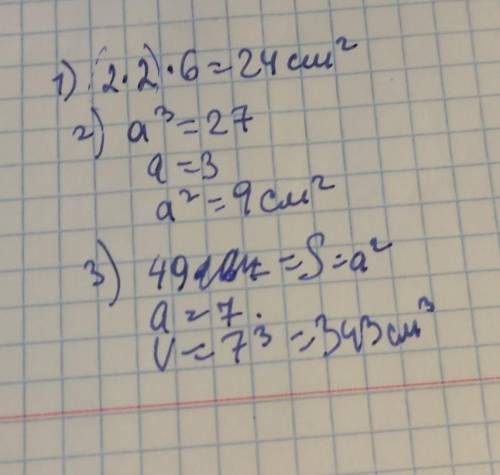 1) (2·2)·6=24 см²
2) a³=27
a=3
a²=9 см²
3) 49 =S=a²
a=7.
V=7³=343 см³